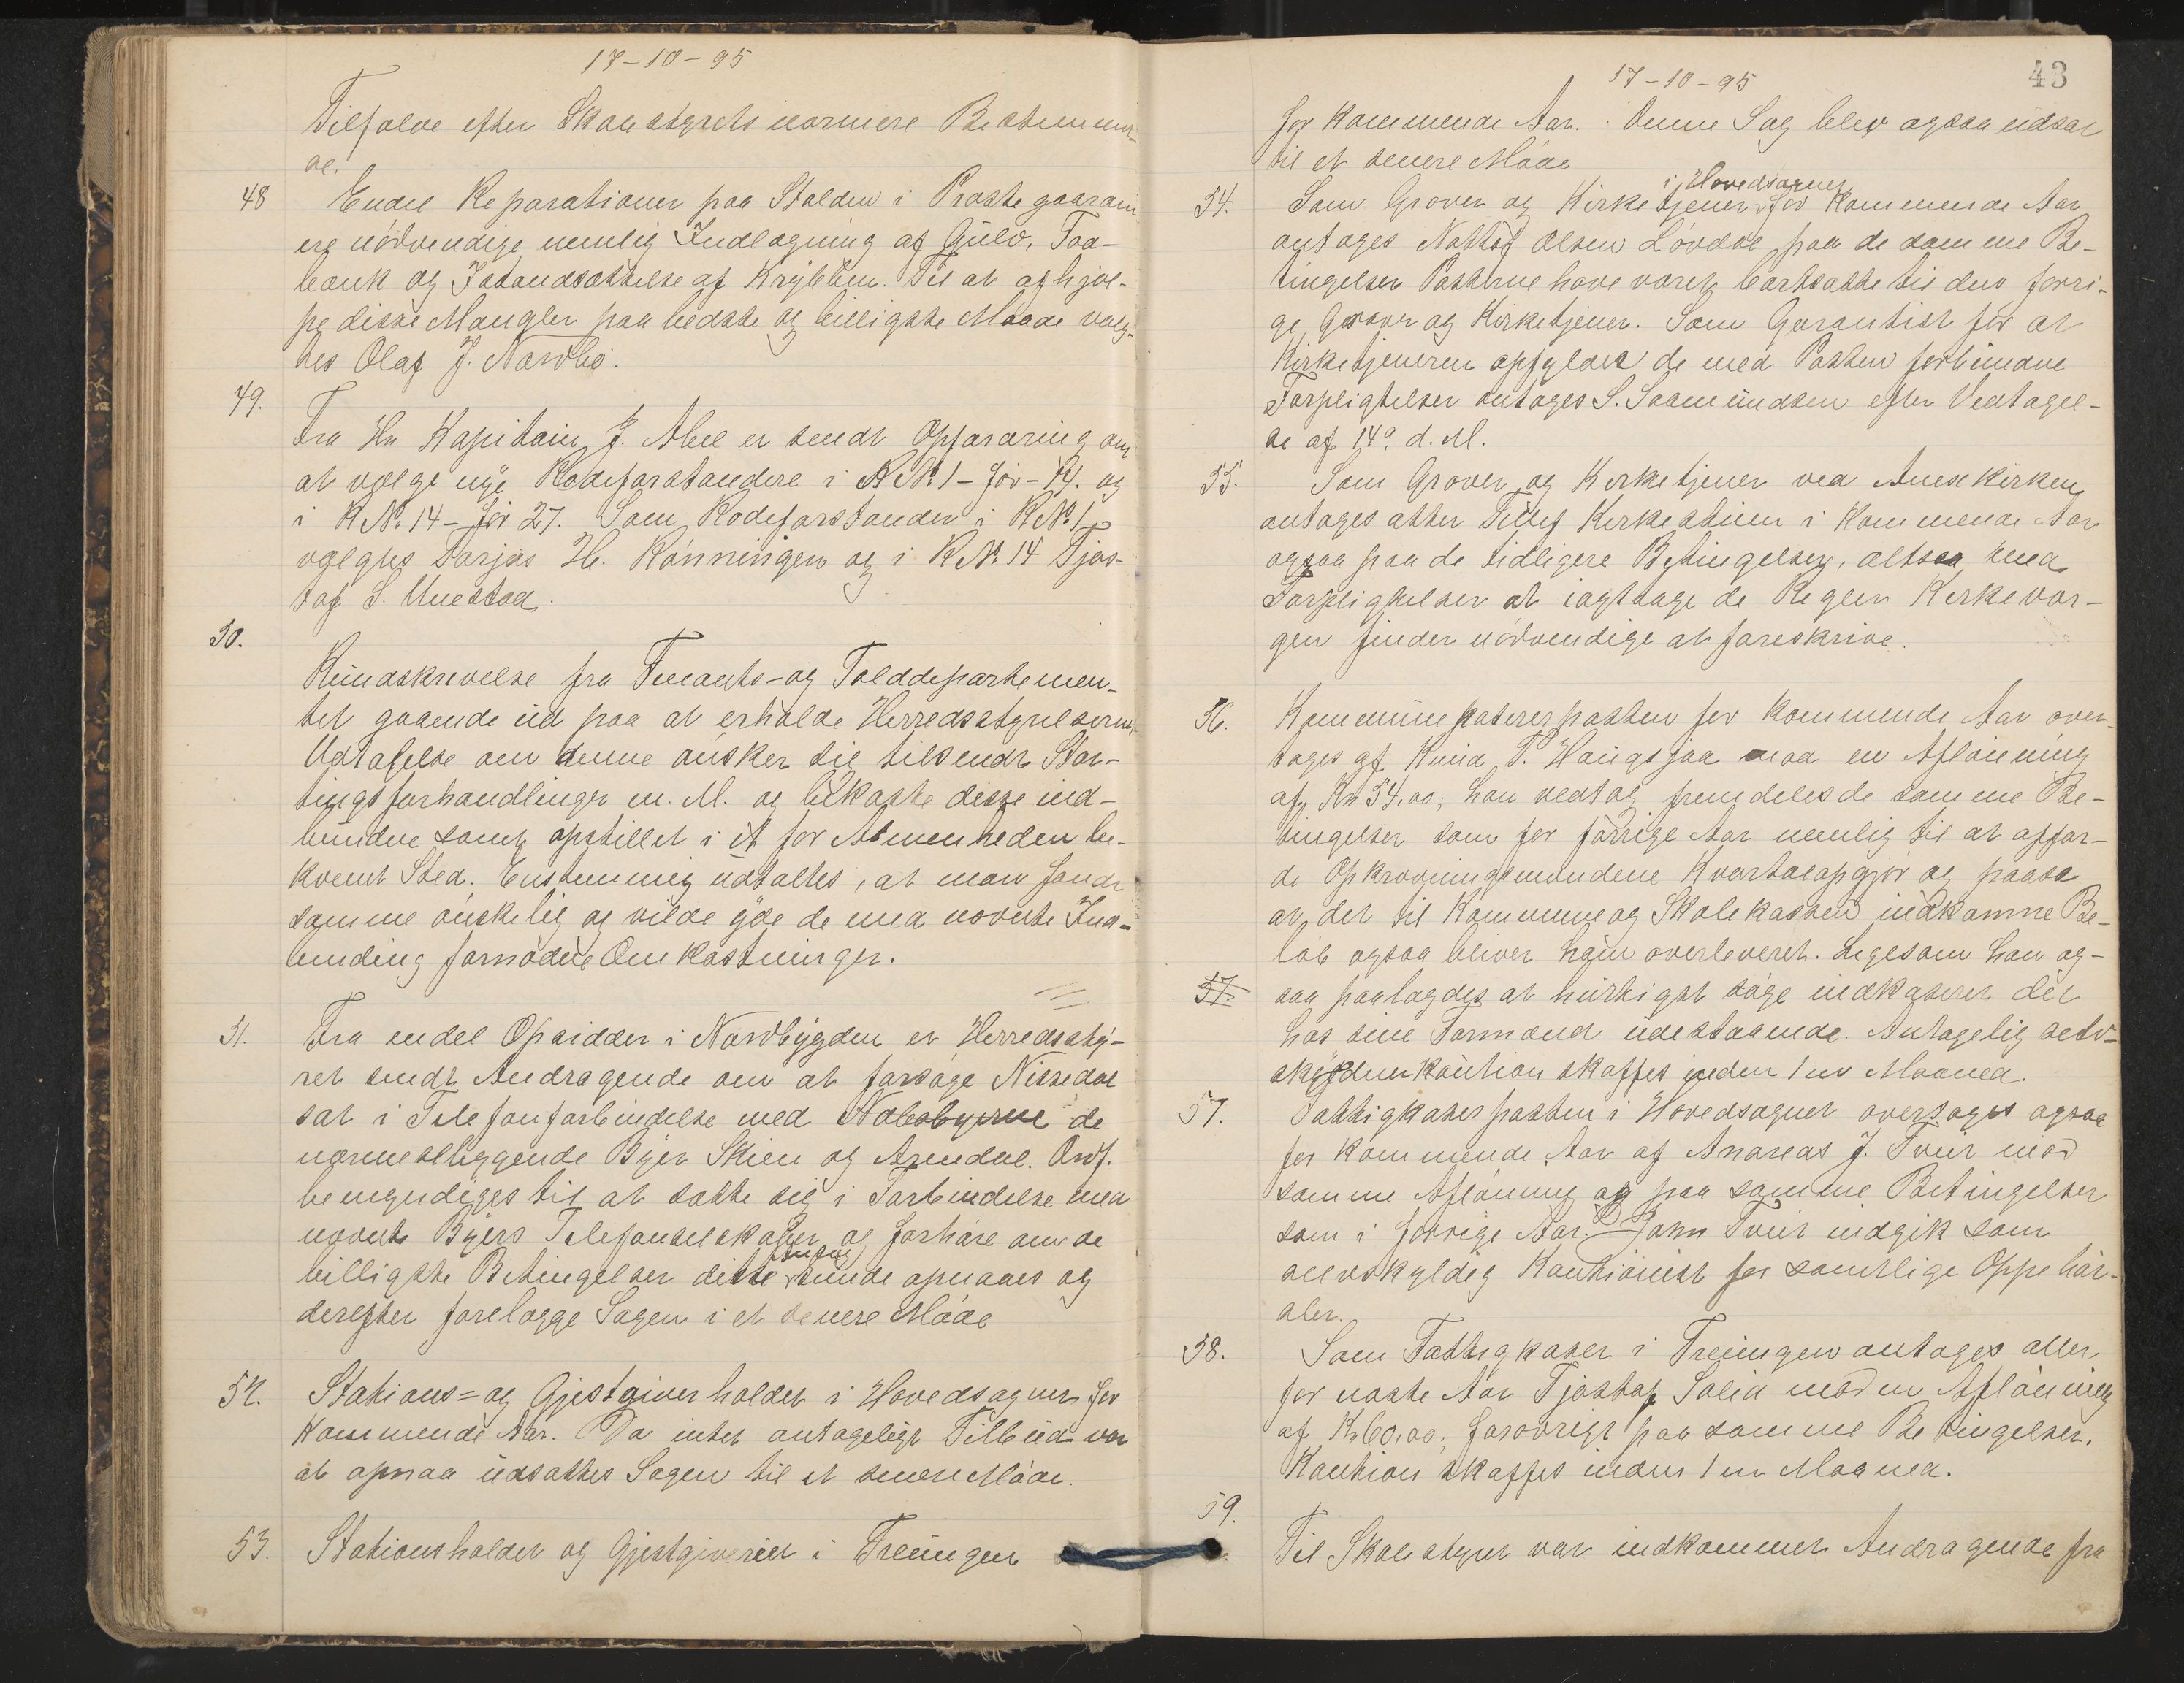 17-10-95
Tilfælde efter Skolestyrets nærmere Bestemmel-
se.
48 Endel Reparationer paa Stalden i Præstegaarden
ere nødvendige nemlig Indlægning af Gulv, Fod-
bænk og Istandsættelse af Krybben. Til at afhjæl-
pe disse Mangler paa bedste og billigste Maade valg-
tes Olaf J. Nordbø.
49.
Fra Hr Kapitain J. Abel er sendt Opfordring om
at vælge nye Rodeforstandere i R.N.1 - før - 14. og
i R.N. 14 - før 27. Som Rodeforstander i R.N.1
valgtes Torjus H. Rønningen og i R.N. 14 Tjos-
tof S. Unestad.
50.
Rundskrivelse fra Finants- og Tolddepartemen-
tet gaaende ud paa at erholde Herredsstyrelsernes
Udtalelse om denne ønsker sig tilsendt Stor-
tingsforhandlinger m. M. og bekoste disse ind-
bundne samt opstillet i et for Almenheden be-
kvemt Sted. Enstemmig udtaltes, at man fandt
samme ønskelig og vilde gjøre de med nævnte Ind-
binding fornødne Omkostninger.
51. Fra endel Opsidder i Nordbygden er Herredssty-
ret sendt Andragende om at forsøge Nissedal
sat i Telefonforbindelse med Nabobyerne de
nærmestliggende Byer Skien og Arendal. Ordf.
bemyndiges til at sætte sig i Forbindelse med
nævnte Byers Telefonselskaber og forhøre om de
billigste Betingelser dette kunde opnaaes og
derefter forelægge Sagen i et senere Møde
52. Stations- og Gjestgiverholdet i Hovedsognet for
kommende Aar. Da intet antageligt Tilbud var
at opnaa udsattes Sagen til et senere Møde.
53. Stationsholdet og Gjestgiveriet i Treungen
43
17-10-95
for kommende Aar. Denne Sag blev ogsaa udsat
til et senere Møde
i Hovedsognet
54. Som Graver og Kirketjener for kommende Aar
antages Nottof Olsen Løvdal paa de samme Be-
tingelser Posterne have været bortsatte til den forri-
ge Graver og Kirketjener. Som Garantist for at
Kirketjeneren opfylder de med Posten forbundne
Forpligtelser antages S. Saamundsen efter Vedtagel-
se af 14de d. M.
55. Som Graver og Kirketjener ved Anexkirken
antages atter Tellef Kirkestuen i kommende Aar
ogsaa paa de tidligere Betingelser, altsaa med
Forpligtelser at iagttage de Regler Kirkevær-
gen finder nødvendige at foreskrive.
56. Kommunekassererposten for kommende Aar over-
tages af Knud T. Haugsjaa mod en Aflønning
af Kr 54,00; han vedtog fremdeles de samme Be-
tingelser som for forrige Aar nemlig til at affor-
de Opkrævningsmændene Kvartalopgjør og paase
at det til Kommune og Skolekassen indkomne Be-
løb ogsaa bliver ham overleveret. Ligesom han og-
57. saa paalagdes at hurtigst søge indkasseret det
hos sine Formænd udestaaende. Antagelig selv-
skyldnerkaution skaffes inden 1 en Maaned.
57. Fattigkasserposten i Hovedsognet overtages ogsaa
for kommende Aar af Andreas J. Tveit mod
samme Aflønning og paa samme Betingelser
som i forrige Aar. John Tveit indgik som
selvskyldig Kautionist for samtlige Oppebør-
sler.
58. Som Fattigkasser i Treungen antages atter
for næste Aar Tjostof Solid mod en Aflønning
af Kr 60,00; forøvrigt paa samme Betingelser.
Kaution skaffes inden 1 en Maaned.
59.
Til Skolestyret var indkommet Andragende fra